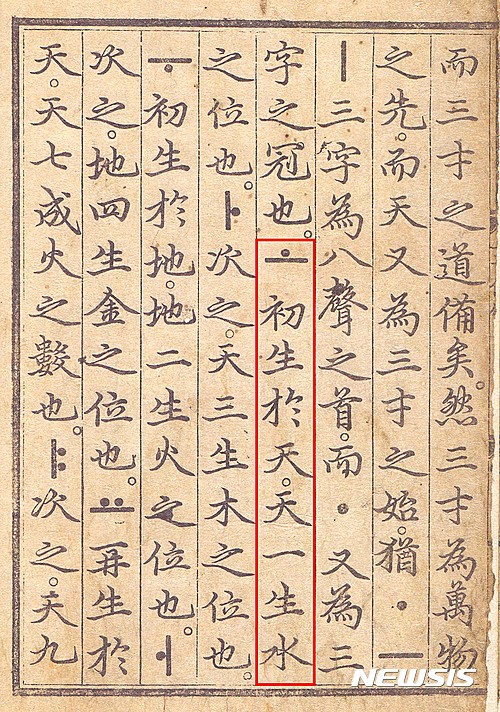 而三才之道備矣。然三才為萬物
之先。而天又為三才之始。猶ㆍㅡ
ㅣ三字為八聲之首。而ㆍ又為三
字之冠也。ㅗ初生於天。天一生水
之位也。ㅏ次之。天三生木之位也。
ㅜ初生於地。地二生火之位也。ㅓ
次之。地四生金之位也。ㅛ再生於
天。天七成火之數也。ㅑ次之。天九
NEWSIS